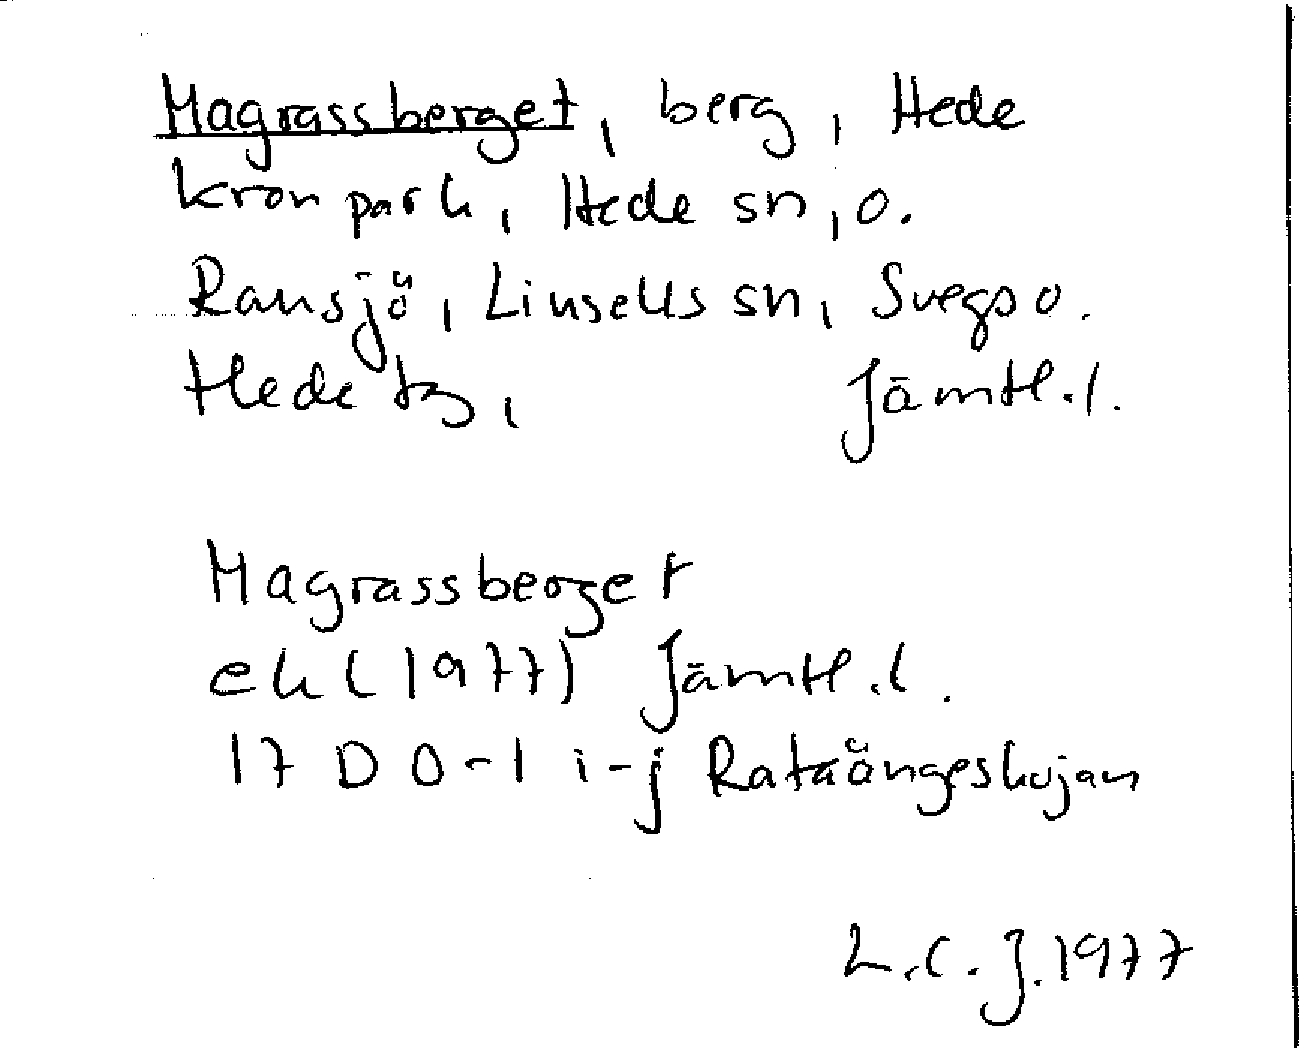 Magrassberget, berg, Hede
kronpark, Hede sn, o.
Ransjö, Linsells sn, Svegs o.
Hede tg, Jämtl.l.
Magrassberget
ek (1977) Jämtl.l.
17 D 0-1 i-j Rataängeskojan
L.C.J. 1977